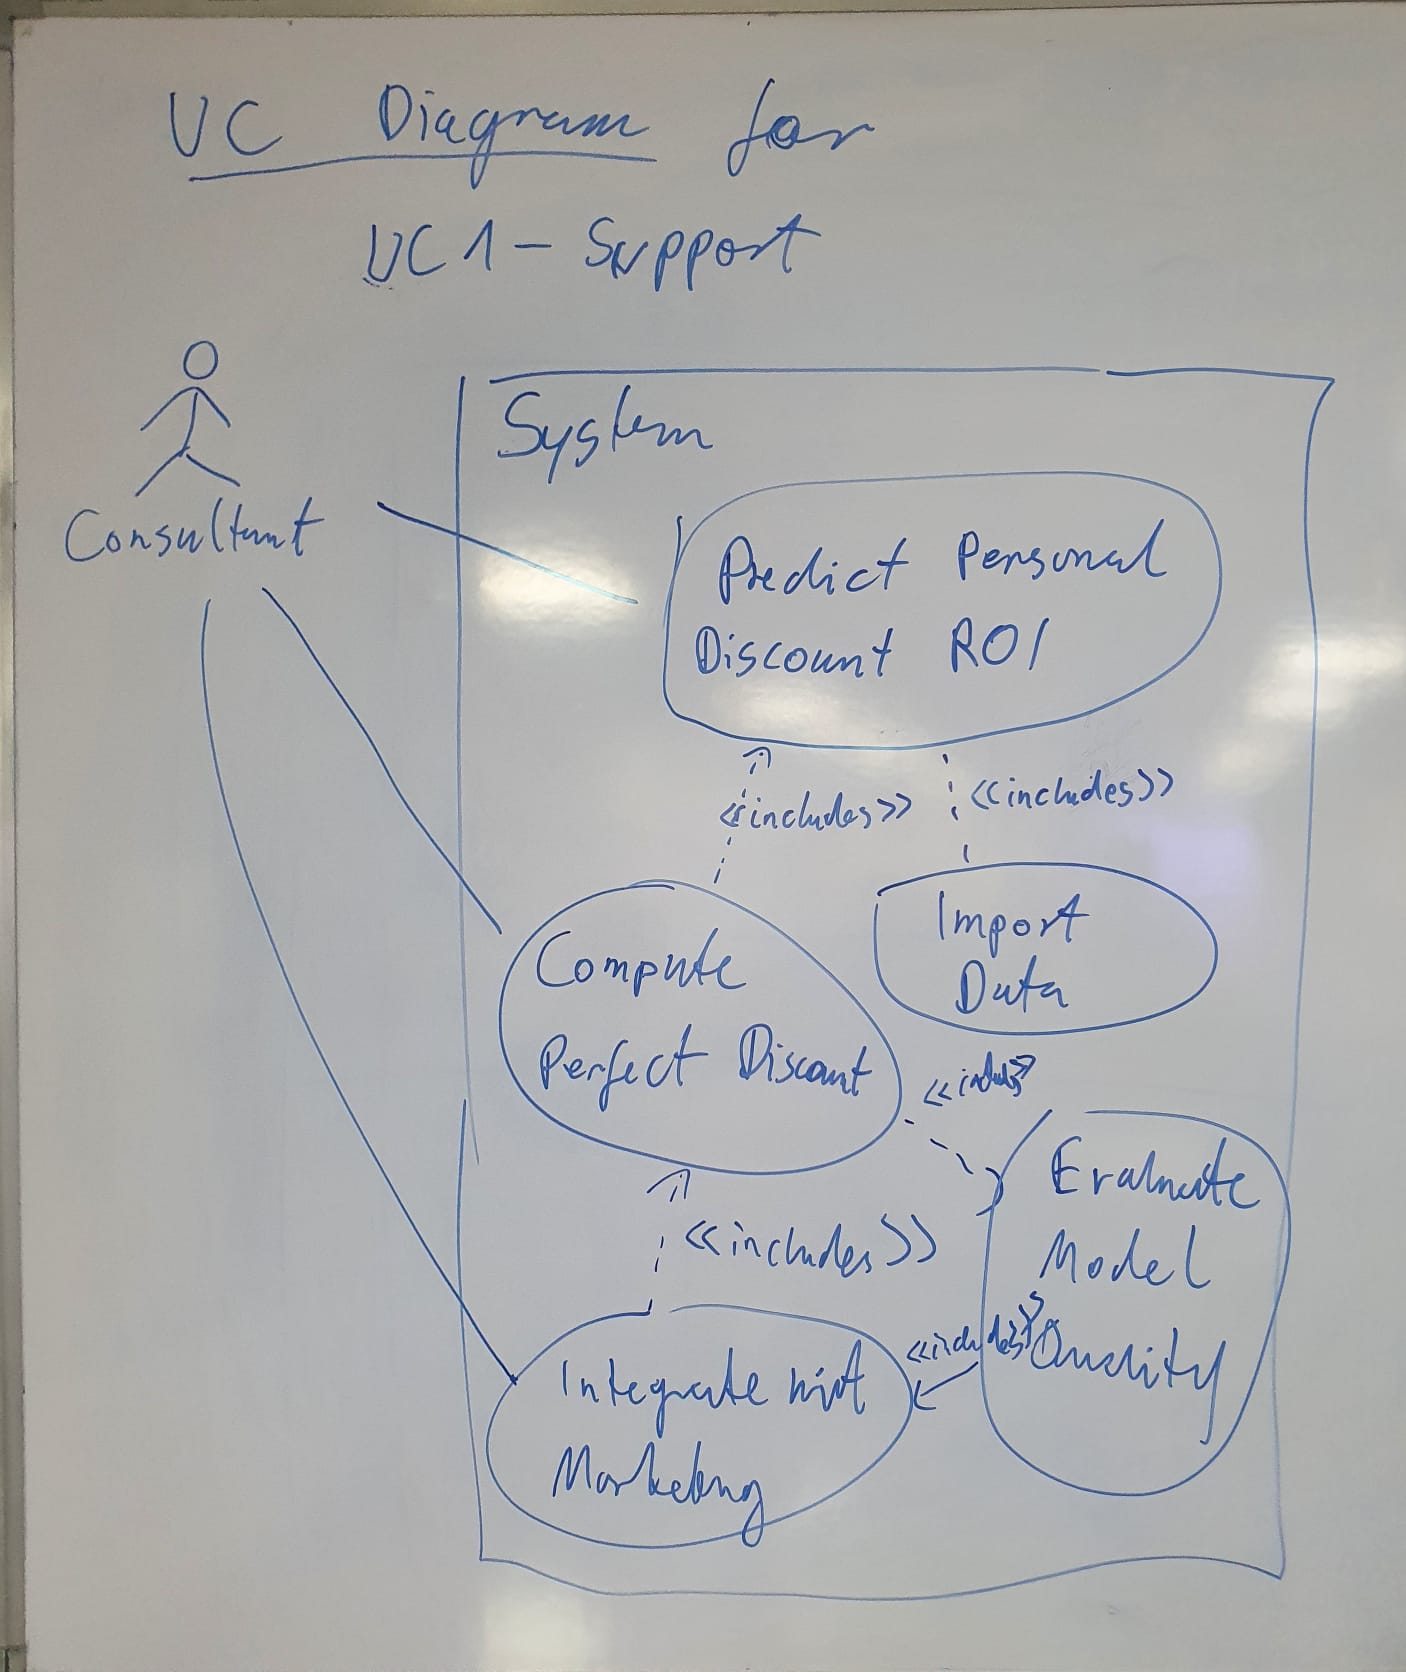 UC Diagram for
UC1 - Support
System
Consultant
Predict Personal
Discount ROI
<<includes>>
<<includes>>
Import
Data
Compute
Perfect Discount
<<includes>>
Evaluate
Model
Quality
<<includes>>
<<includes>>
Integrate
Marketing